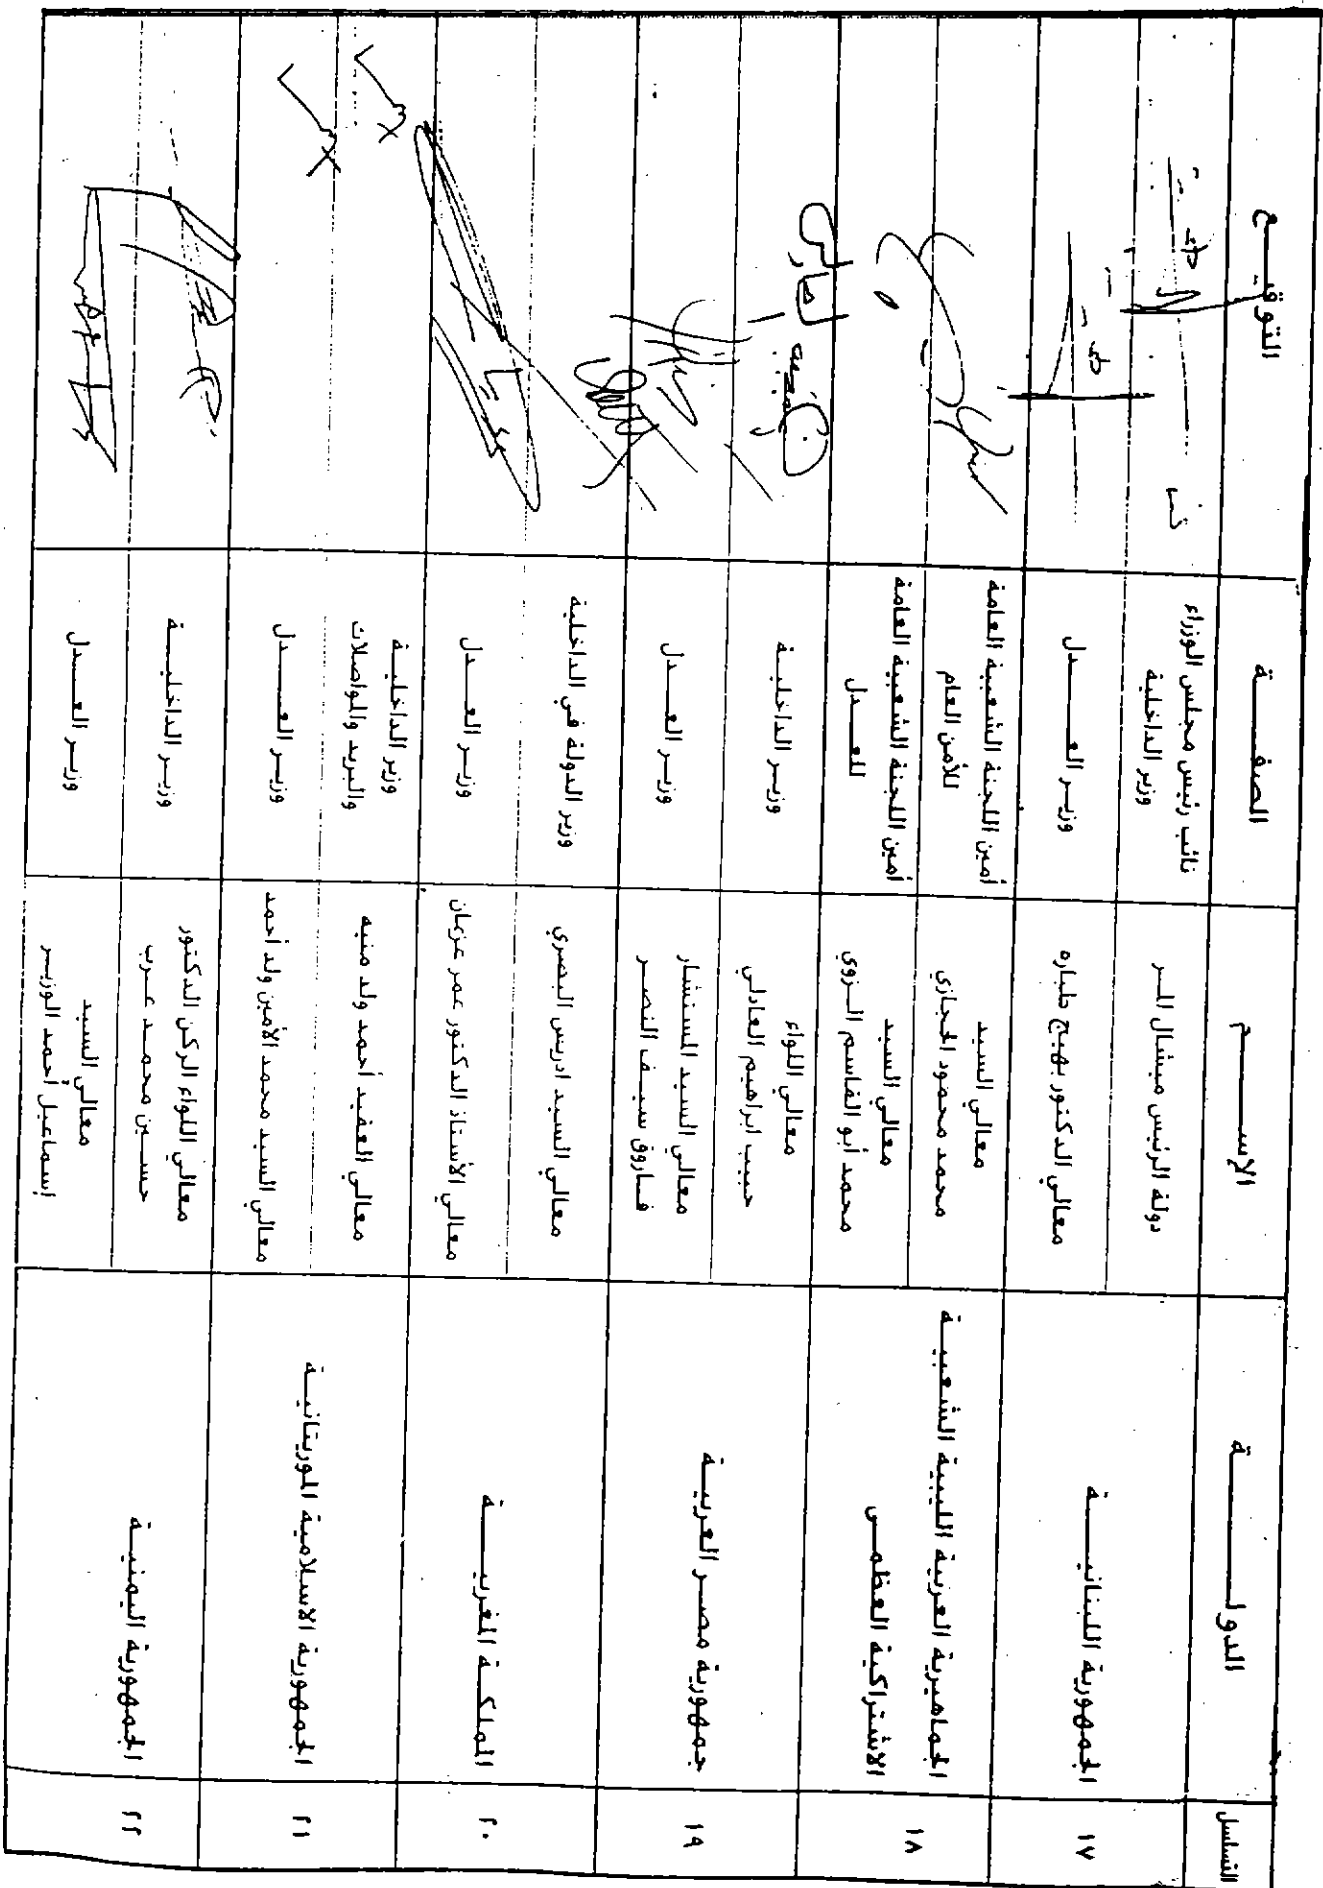 التسلسل الدولـــــة الإســــم الصفـــة التوقيـــع
١٧
الجمهورية اللبنانيــــة
دولة الرئيس ميشال المـر
نائب رئيس مجلس الوزراء
وزير الداخلية
معالي الدكتور بهيج طباره
وزيـر العـــدل
١٨
الجماهيرية العربية الليبية الشعبيــة
الاشتراكية العظمـى
معالي السيد
محمد محمود الحجازي
أمين اللجنة الشعبية العامة
للأمن العام
معالي السيد
محمد أبو القاسم الـزوي
أمين اللجنة الشعبية العامة
للعـــدل
١٩
جمهورية مصــر العربيــة
معالي اللواء
حبيب ابراهيم العادلـي
وزيـر الداخليــة
معالي السيد المستشار
فـاروق سيـف النصـر
وزيـر العــدل
٢٠
الملكـــة المغربيـــــة
معالي السيد ادريس البصري
وزير الدولة في الداخلية
معالي الأستاذ الدكتور عمر عزيمان
وزيـر العـــدل
٢١
الجمهورية الاسلامية الموريتانيــة
معالي العقيد أحمد ولد منيه
وزير الداخليــة
والبريد والمواصلات
معالي السيد محمد الأمين ولد أحمد
وزيـر العـــدل
٢٢
الجمهورية اليمنيــة
معالي اللواء الركن الدكتور
حسـين محمـد عـرب
وزيـر الداخليـــة
معالي السيـد
إسماعيل أحمد الوزيـر
وزيـر العــدل